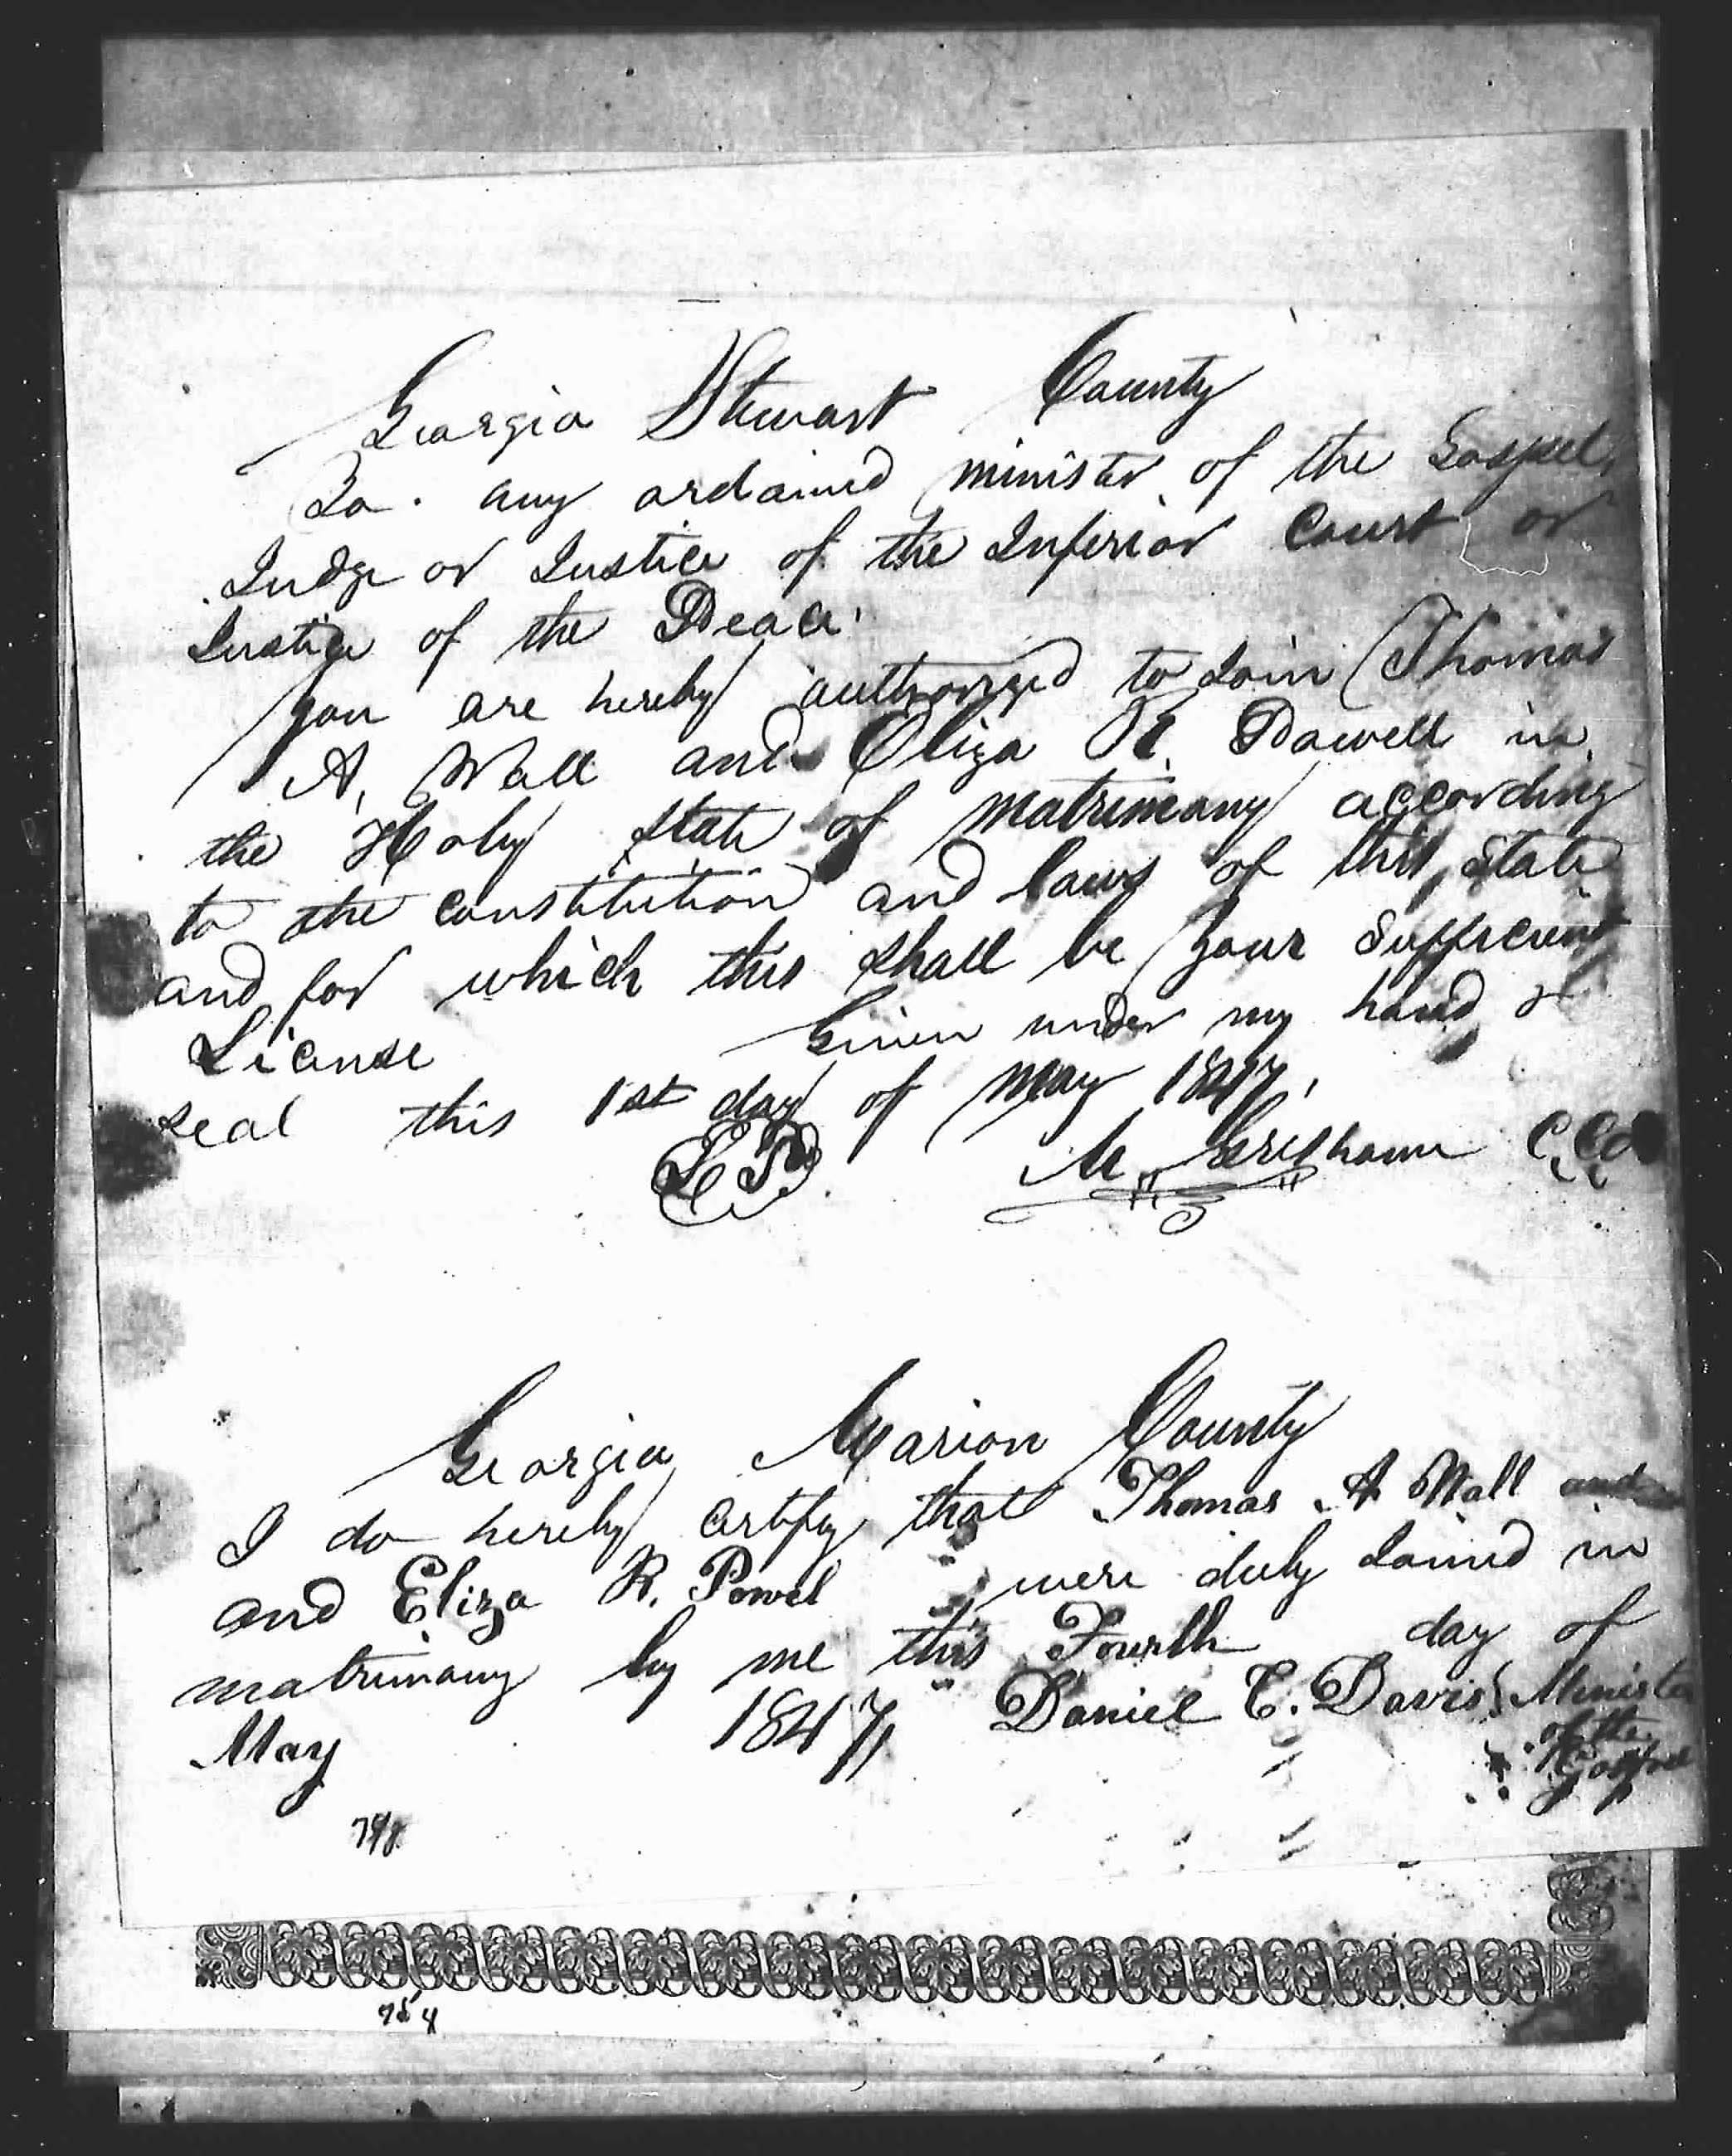 Georgia Stewart County
To. any ordained minister of the Gospel,
Judge or Justice of the Inferior Court or
Justice of the Peace.
you are hereby authorized to Join Thomas
A. Wall and Eliza R. Powell in
the Holy state of matrimony according
to the constitution and laws of this state
and for which this shall be your sufficient
License Given under my hand &
seal this 1st day of May 1847.
L S M Gresham C.C.O
Georgia Marion County
I do hereby certify that Thomas A Wall and
and Eliza R. Powel were duly Joined in
matrimony by me this Fourth day of
May 1847 Daniel C. Davis Minister
of the
Gospel
798
754